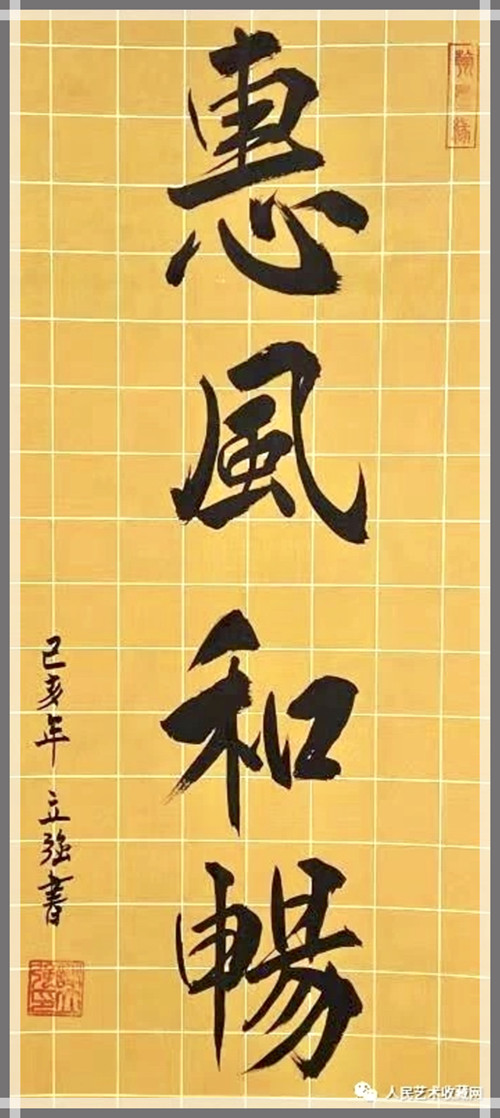 惠風和暢
己亥年 立强書
人民艺术收藏网